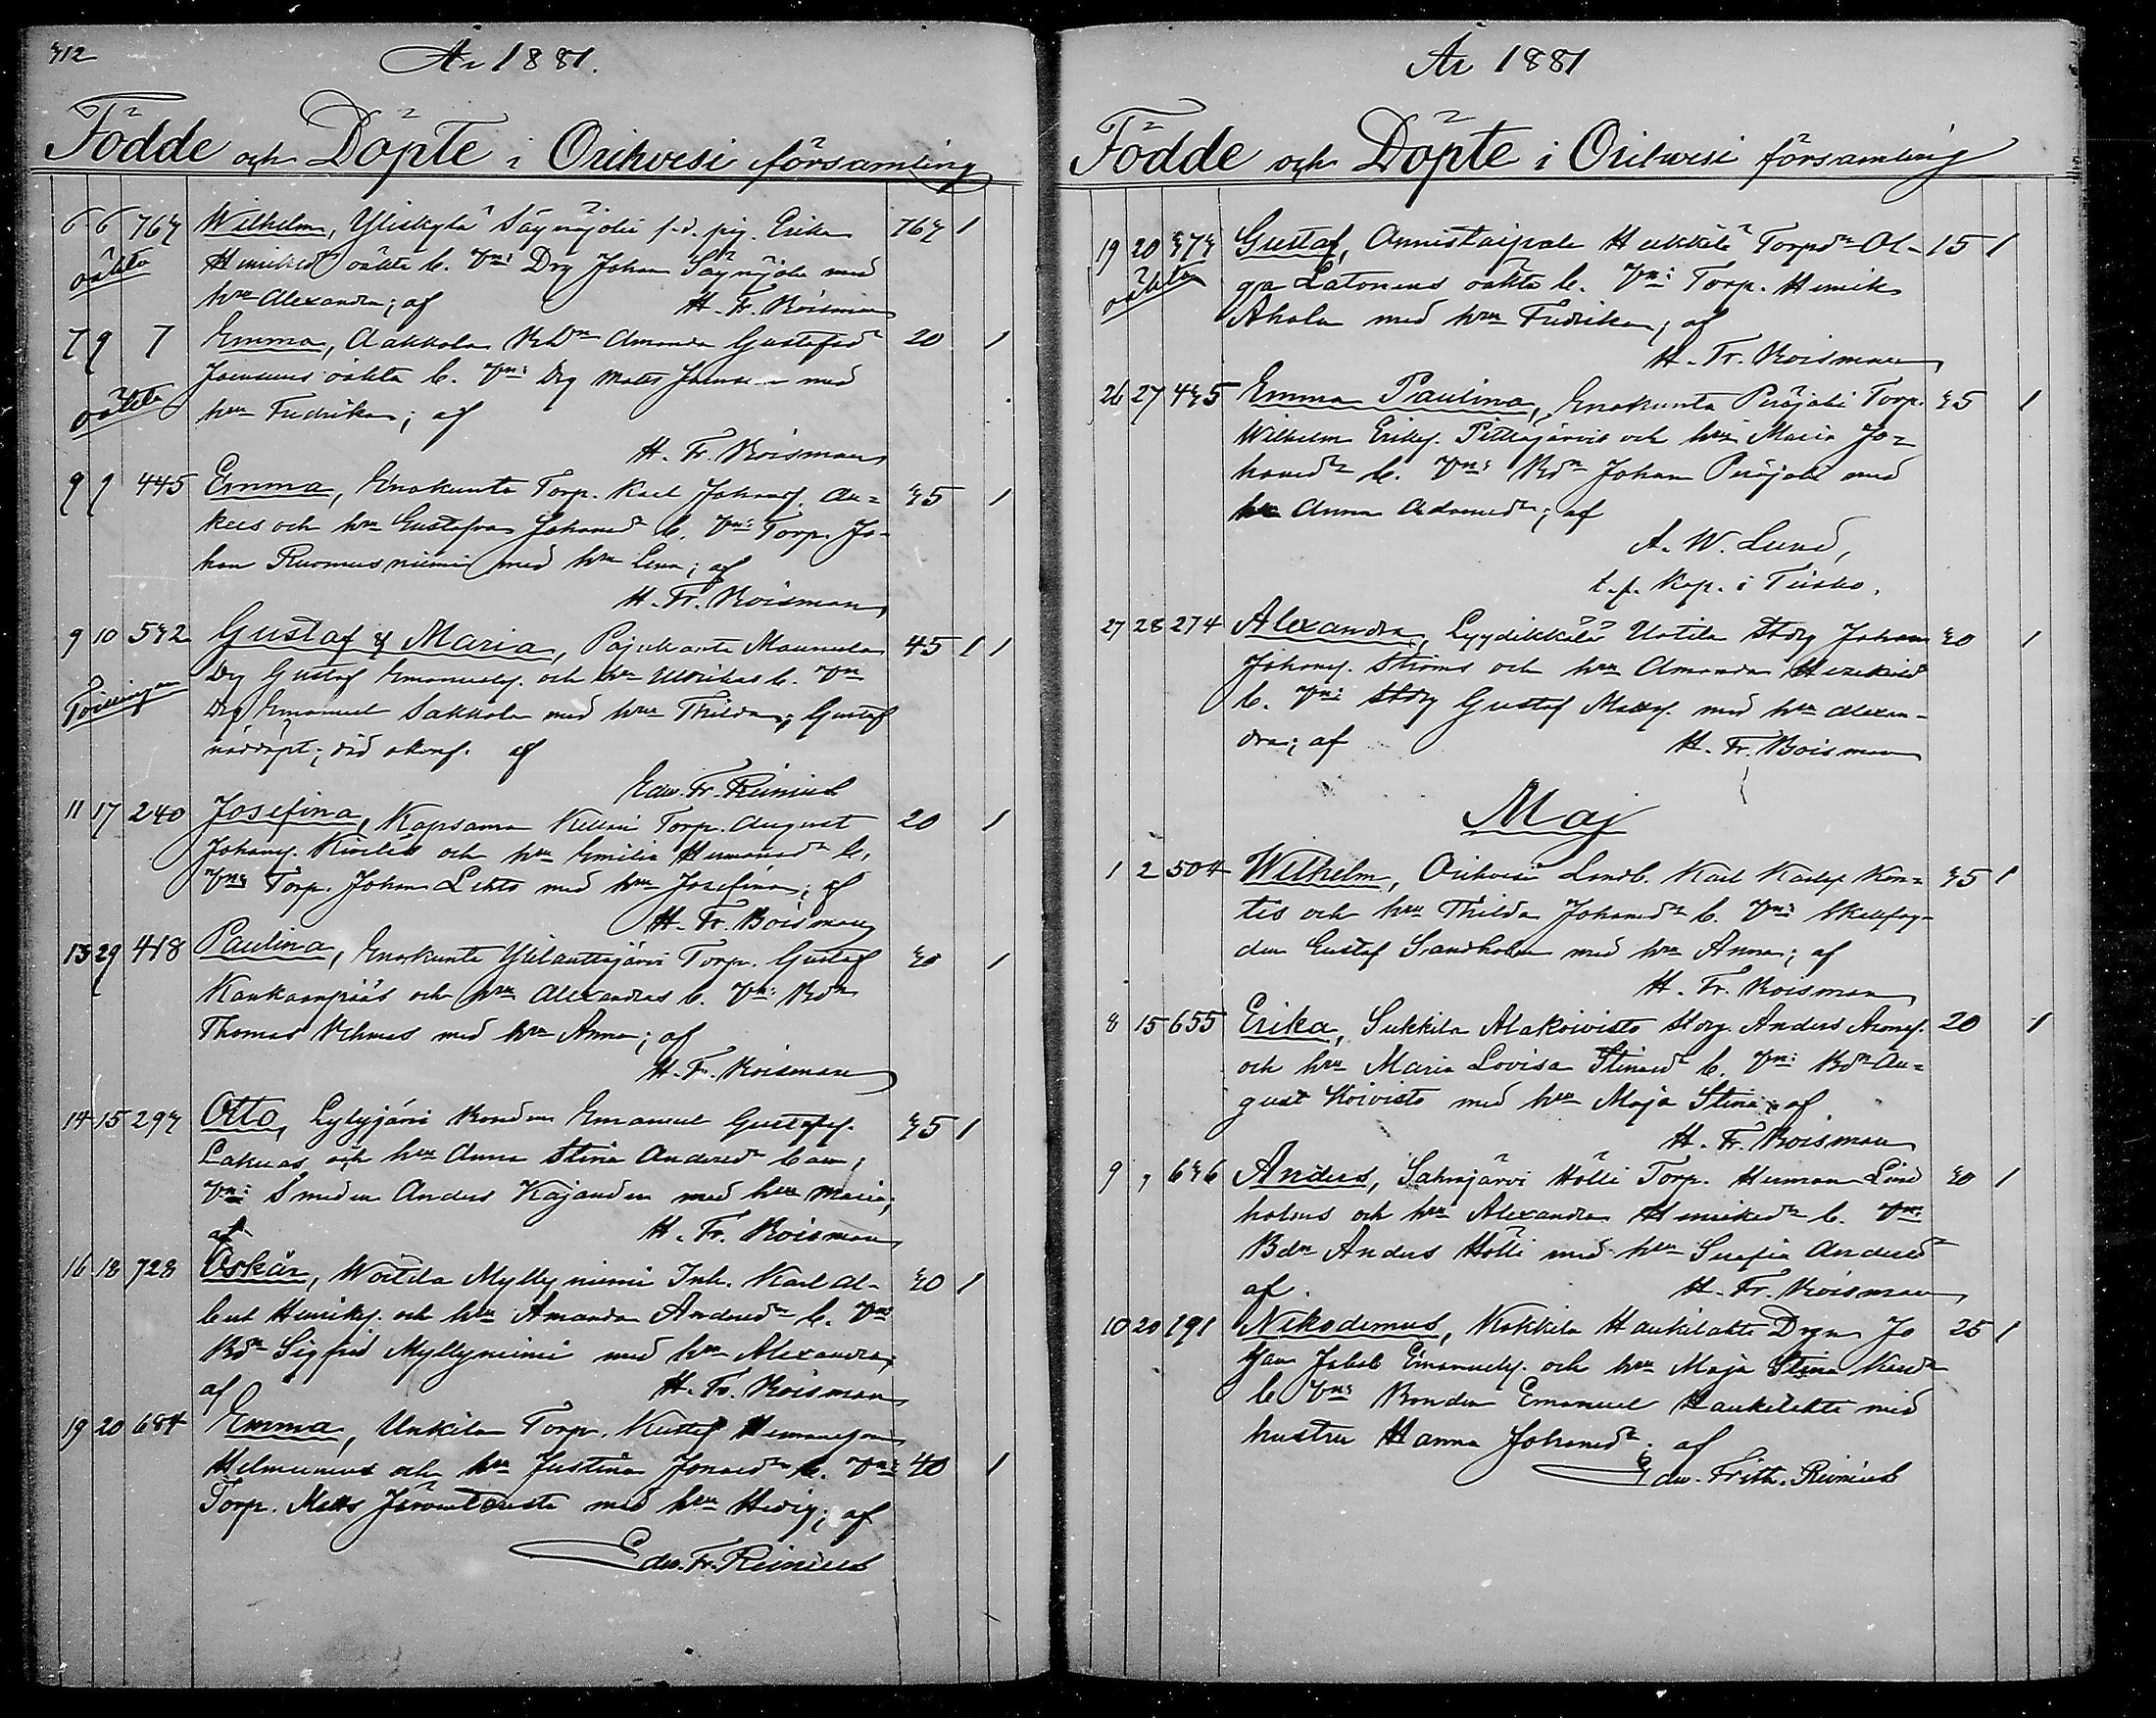 312
År 1881.
Födde och Döpte i Orihvesi församling
6 6 763 Wilhelm, Yliskylä Säynäjoki f.d. pig. Erika 763 1
oäkta Henriksd:r oäkta b. Vn: Drg Johan Säynäjoki med
hru Alexandra; af H. Fr. Roisman
7 9 7 Emma, Aakkola Bdr Amanda Gustafsd:r 20 1
oäkta b. Vn: Drg Matts med
oäkta hru Fredrika; af
H. Fr. Roisman
9 9 445 Emma, Enokunta Torp. Karl Johansf. Au= 35 1
kees och hru Gustafva Johansd:r b. Vn: Torp. Jo-
han Ruomusniemi med hru Lena; af
H. Fr. Roisman
9 10 532 Gustaf & Maria, Pajukanta Maunula 45 1 1
Drg Gustaf Emanuelsf. och hru Ulrikas b. Vn
Tvillingar Drg Emanuel Sakkola med hru Thilda; Gustaf
nöddöpt; af
Edw. Fr. Reinius
11 17 240 Josefina, Kapsama Torp. August 20 1
Johansf. och hru Emilia Hermansd:r b.
Vn: Torp. Johan Lehto med hru Josefina; af
H. Fr. Roisman
13 29 418 Paulina, Enokunta Torp. Gustaf 30 1
Kankaanpääs och hru Alexandras b. Vn: Bdn
Thomas Vehmas med hru Anna; af
H. Fr. Roisman
14 15 293 Otto, Lylyjärvi Bonden Emanuel Gustafsf. 35 1
Laknas och hru Anna Stina Andersd:r barn;
Vn: Smeden Anders Kajanden med hru Maria;
af H. Fr. Roisman
16 18 728 Oskár, Woitila Myllyniemi Inh. Karl Al- 30 1
bert Henriksf. och hru Amanda Andersd:r b. Vn:
Bdn Sigfrid Myllyniemi med hru Alexandra;
af H. Fr. Roisman
19 20 684 Emma, Unkila Torp. Kustaf Hermansson
och hru Justina Jonasd:r b. Vn: 40 1
Torp. Matts Järventausta med hru Hedvig; af
Edw. Fr. Reinius
År 1881
Födde och Döpte i Orihvesi församling
19 20 373 Gustaf, Onnistaipale Heikkilä Torpd:r Ol- 15 1
oäkta ga Latonens oäkta b. Vn: Torp. Henrik
Ahola med hru Fredrika; af
H. Fr. Roisman
26 27 435 Emma Paulina, Enokunta Peräjoki Torp. 35 1
Wilhelm Eriksf. Pitkäjärvis och hru Maria Jo=
hansd:r b. Vn: Bdn Johan Peräjoki med
hru Anna Adamsd:r; af
A. W. Lund,
t.f. Kap. i Teisko.
27 28 274 Alexandra, Lyydikkälä Uotila Stdrg Johan 30 1
Johansf. Ströms och hru Amanda
b. Vn: Stdrg Gustaf Mattsf. med hru Alexan-
dra; af H. Fr. Roisman
Maj
1 2 504 Wilhelm, Orihvesi Landb. Karl Karlsf. Kon= 35 1
tis och hru Thilda Johansd:r b. Vn: Skallfog-
den Gustaf Sandholm med hru Anna; af
H. Fr. Roisman
8 15 655 Erika, Sukkila Alakoivisto Stdrg. Anders Aronsf. 20 1
och hru Maria Lovisa b. Vn: Bdn Au=
gust Koivisto med hru Maja Stina; af
H. Fr. Roisman
9 9 636 Anders, Sahrajärvi Hölli Torp. Herman Lind 30 1
holms och hru Alexandra Henriksd:r b. Vn:
Bdn Anders Hölli med hru Serafia Andersd:r
af. H. Fr. Roisman
10 20 191 Nikodemus, Kokkila Haukilahti Drgn Jo 25 1
han Jakob Emanuelsf. och hru Maja Stina
b. Vn: Bonden Emanuel Haukilahti med
hustru Hanna Johansd:r; af
Edw. Frith. Reinius